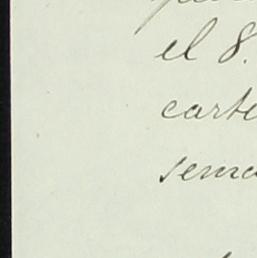 el 8.
carte
sema